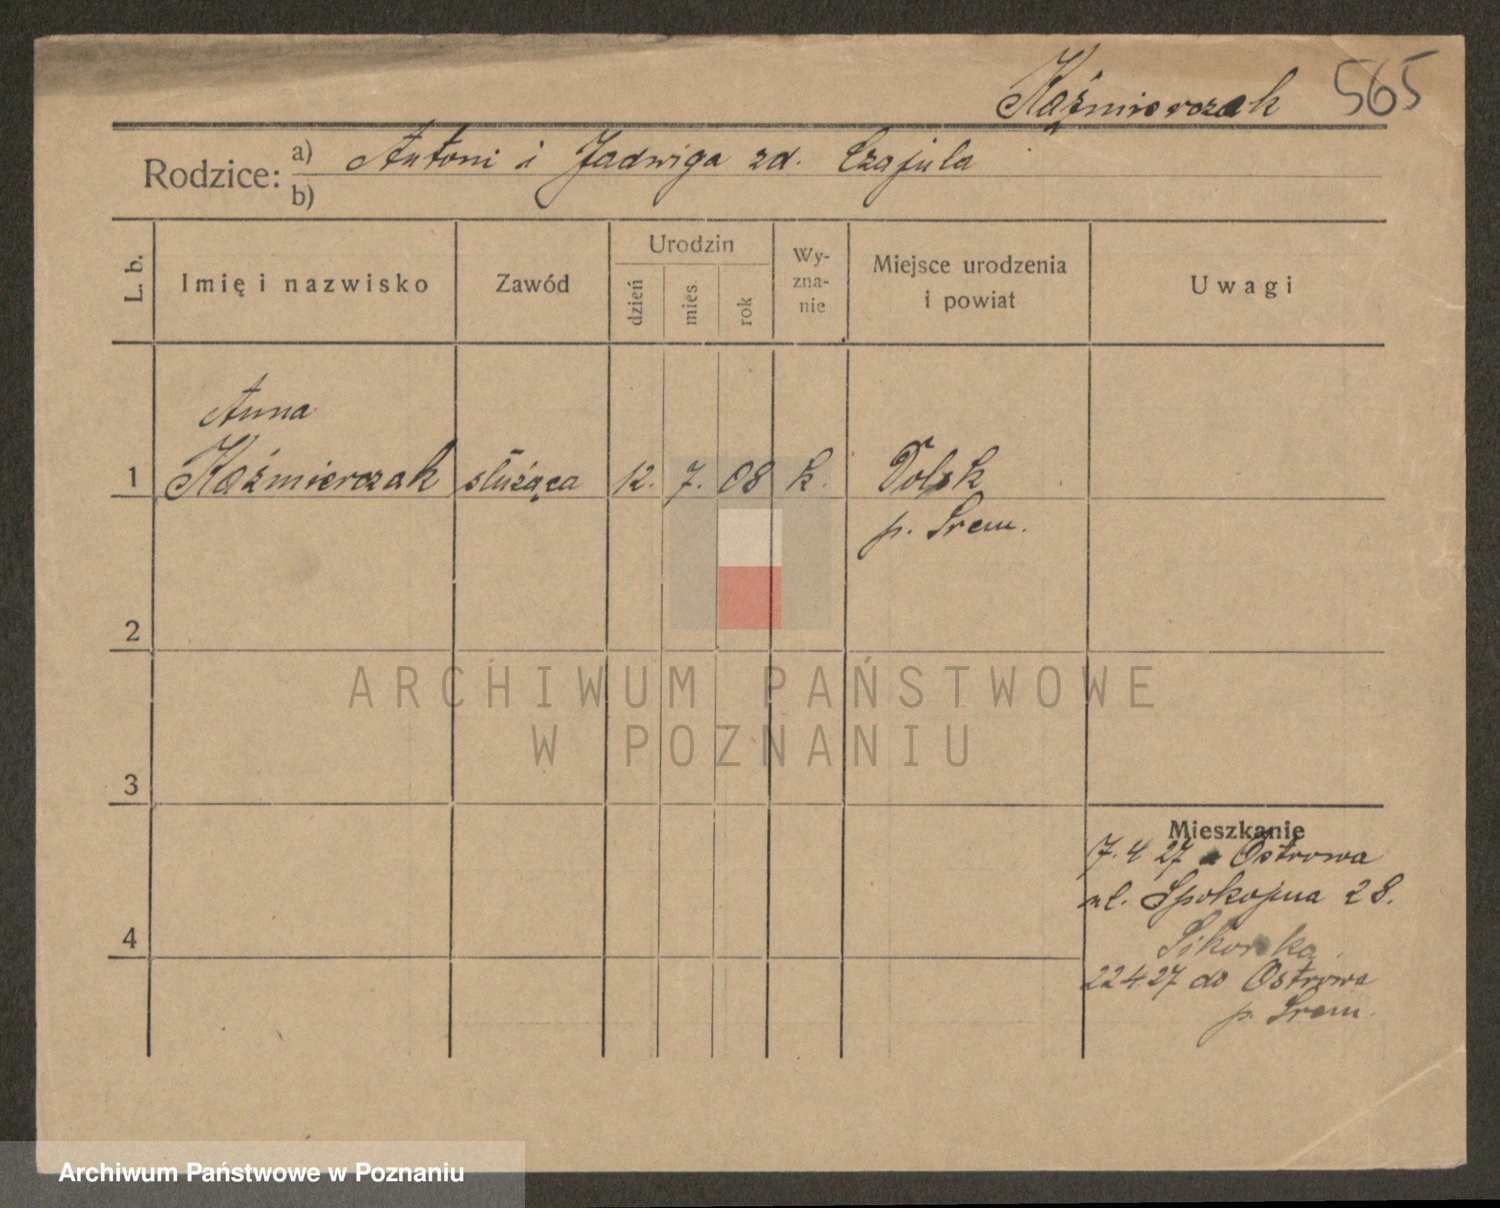 Kaźmierczak 565
Rodzice: a) Antoni i Jadwiga zd. Czajula
b)
L. b. Imię i nazwisko Zawód Urodzin dzień mies. rok Wy-zna-nie Miejsce urodzenia i powiat Uwagi
Anna
1 Kaźmierczak służąca 12. 7. 08 k. Dolsk
p. Śrem.
2
ARCHIWUM PAŃSTWOWE
W POZNANIU
3
Mieszkanie
7.4 27 z Ostrowa
ul. Spokojna 28.
4 Sikorska
22427 do Ostrowa
p. Śrem.
Archiwum Państwowe w Poznaniu